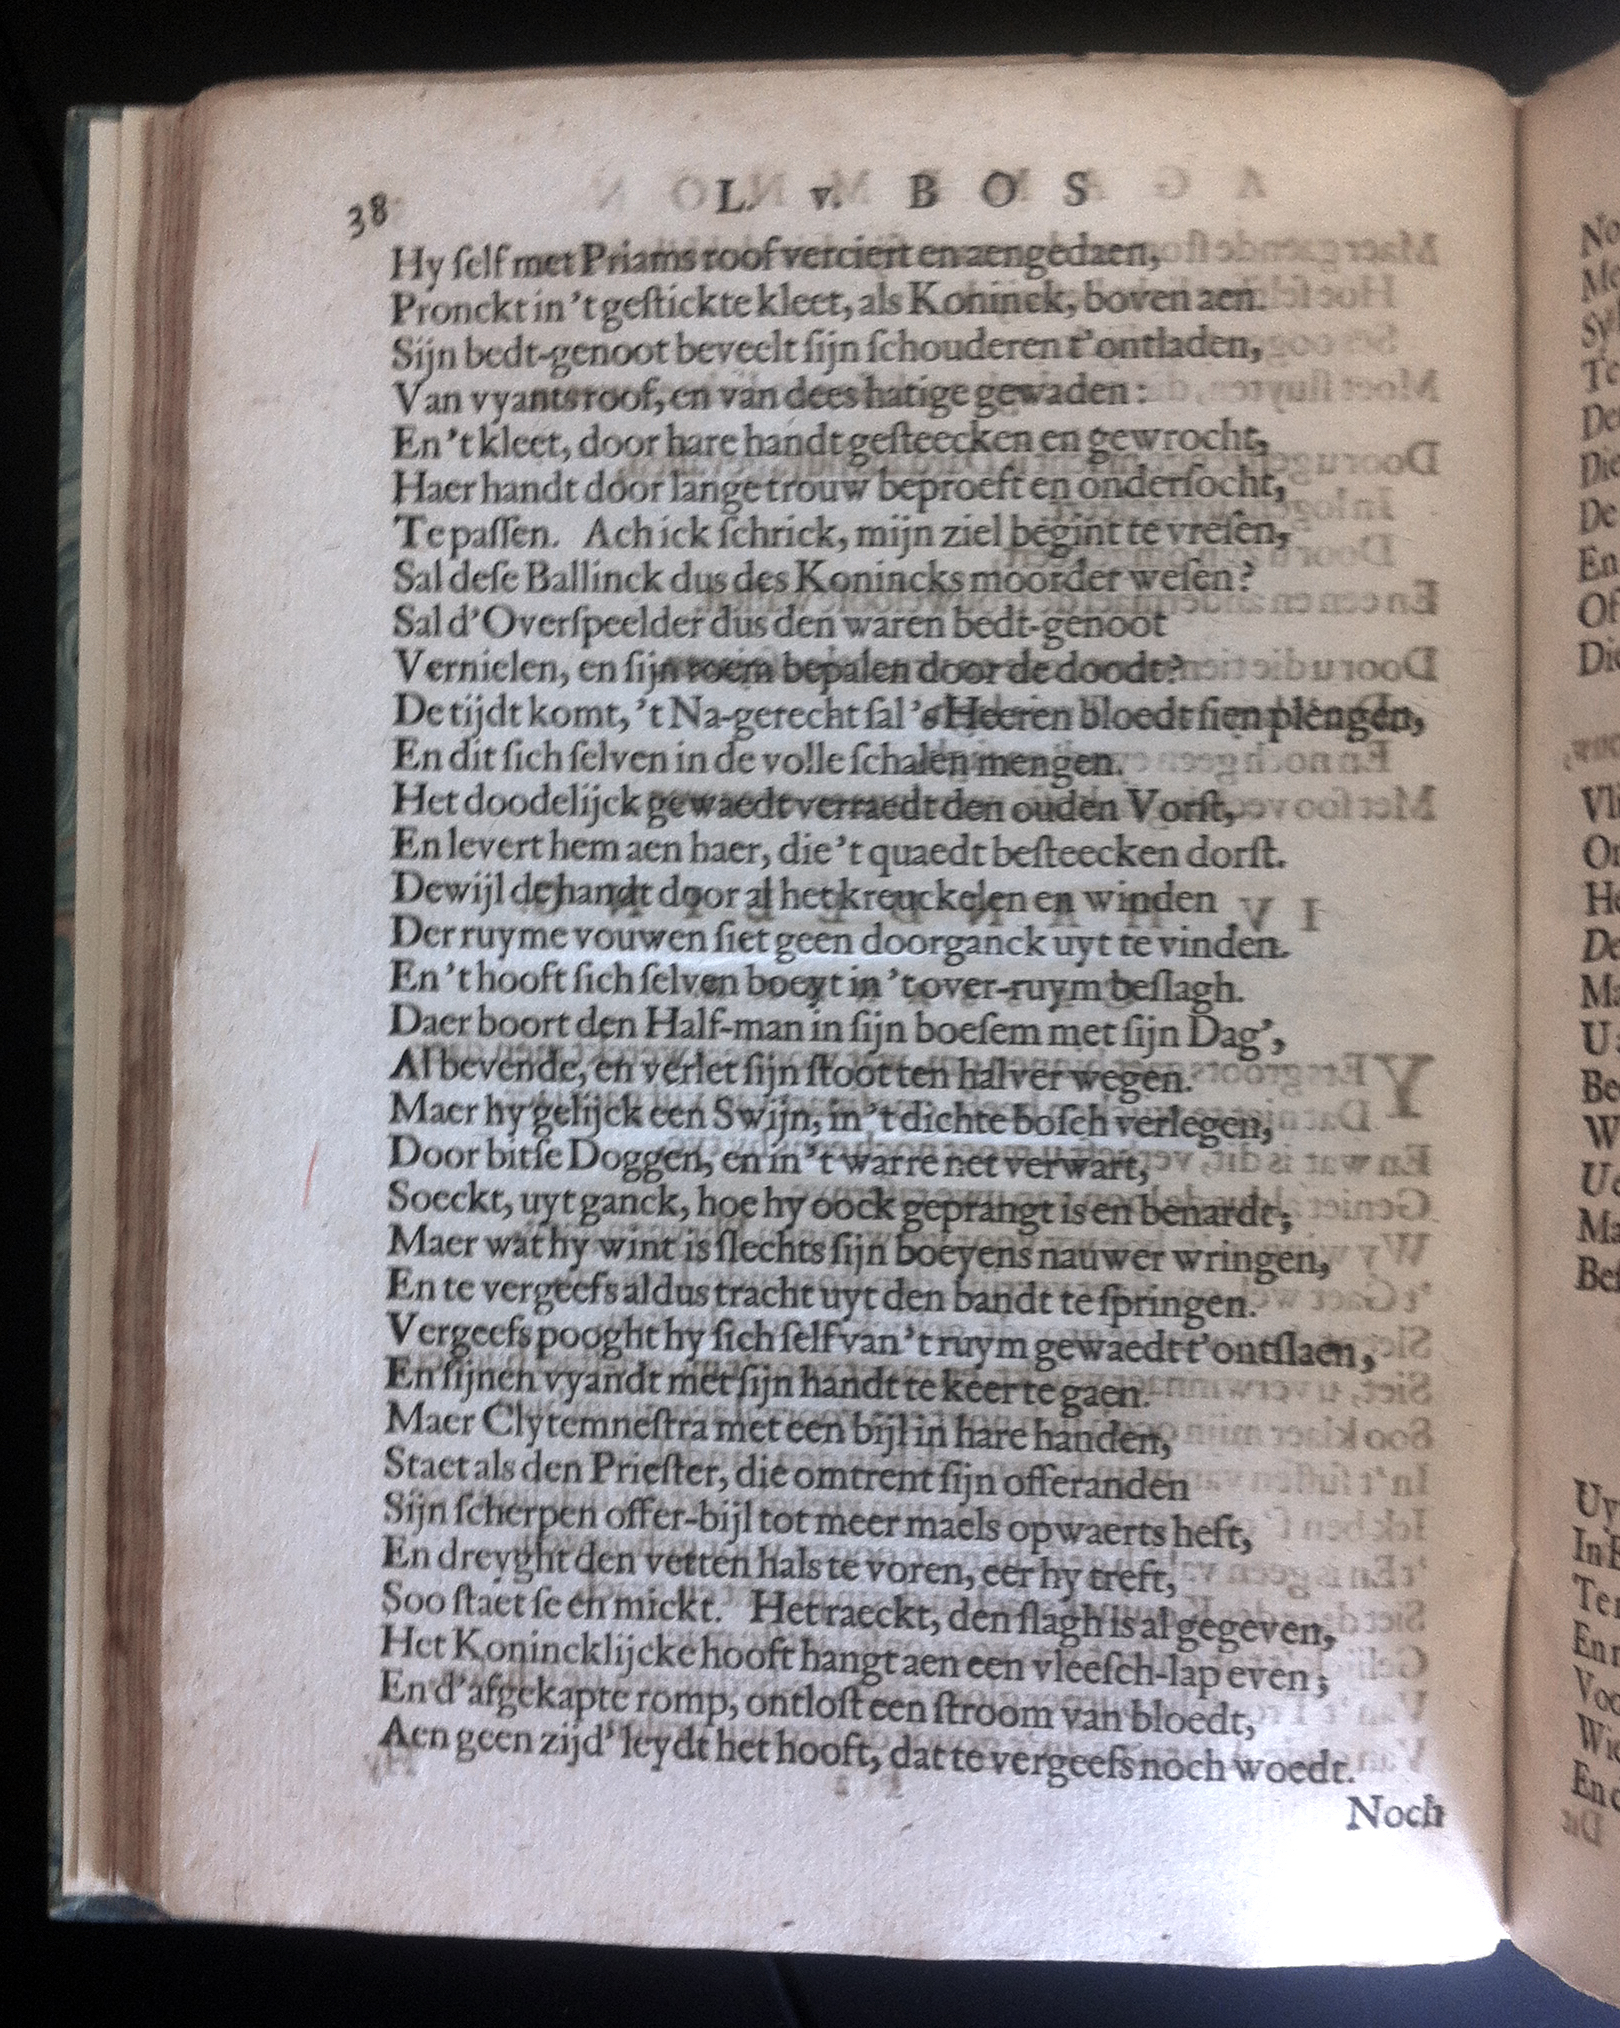 38 L. v. BOS
Hy ſelf met Priams roof verciert en aengedaen,
Pronckt in 't geſtickte kleet, als Koninck, boven aen.
Sijn bedt-genoot beveelt ſijn ſchouderen t'ontladen,
Van vyants roof, en van dees hatige gewaden:
En 't kleet, door hare handt geſteecken en gewrocht,
Haer handt door lange trouw beproeft en onderſocht,
Te paſſen. Ach ick ſchrick, mijn ziel begint te vreſen,
Sal deſe Ballinck dus des Konincks moorder weſen?
Sal d'Overſpeelder dus den waren bedt-genoot
Vernielen, en ſijn roem bepalen door de doodt?
De tijdt komt, 't Na-gerecht ſal 's Heeren bloedt ſien plengen,
En dit ſich ſelven in de volle ſchalen mengen.
Het doodelijck gewaedt verraedt den ouden Vorſt,
En levert hem aen haer, die 't quaedt beſteecken dorſt.
Dewijl de handt door al het kreuckelen en winden
Der ruyme vouwen ſiet geen doorganck uyt te vinden.
En 't hooft ſich ſelven boeyt in 't over-ruym beſlagh.
Daer boort den Half-man in ſijn boeſem met ſijn Dag',
Al bevende, en verlet ſijn ſtoot ten halver wegen.
Maer hy gelijck een Swijn, in 't dichte boſch verlegen,
Door bitſe Doggen, en in 't warre net verwart,
Soeckt, uytganck, hoe hy oock geprangt is en benardt;
Maer wat hy wint is ſlechts ſijn boeyens nauwer wringen,
En te vergeefs aldus tracht uyt den bandt te ſpringen.
Vergeefs pooght hy ſich ſelf van 't ruym gewaedt t'ontſlaen,
En ſijnen vyandt met ſijn handt te keer te gaen.
Maer Clytemneſtra met een bijl in hare handen,
Staet als den Prieſter, die omtrent ſijn offeranden
Sijn ſcherpen offer-bijl tot meermaels opwaerts heft,
En dreyght den vetten hals te voren, eer hy treft,
Soo ſtaet ſe en mickt. Het raeckt, den ſlagh is al gegeven,
Het Konincklijcke hooft hangt aen een vleeſch-lap even;
En d'afgekapte romp, ontloſt een ſtroom van bloedt,
Aen geen zijd' leydt het hooft, dat te vergeefs noch woedt.
Noch